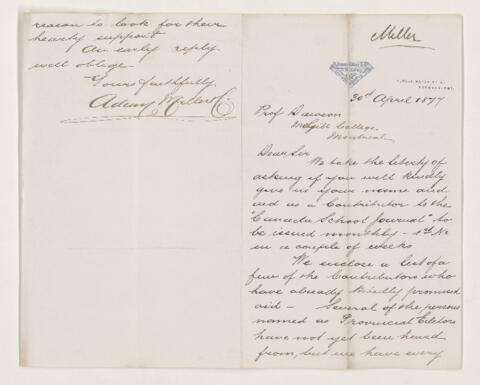 Miller
30th April 1877
Prof Dawson
McGill College
Montreal
Dear Sir
We take the liberty of
asking if you will kindly
give us your name and
aid as a Contributor to the
"Canada School Journal" to
be issued monthly - 1st No
in a couple of weeks
We enclose a list of a
few of the Contributors who
have already kindly promised
aid - Several of the persons
named as Provincial Editors
have not yet been heard
from, but we have every
reason to look for their
hearty support
An early reply
will oblige
Yours faithfully
Adam Miller & Co